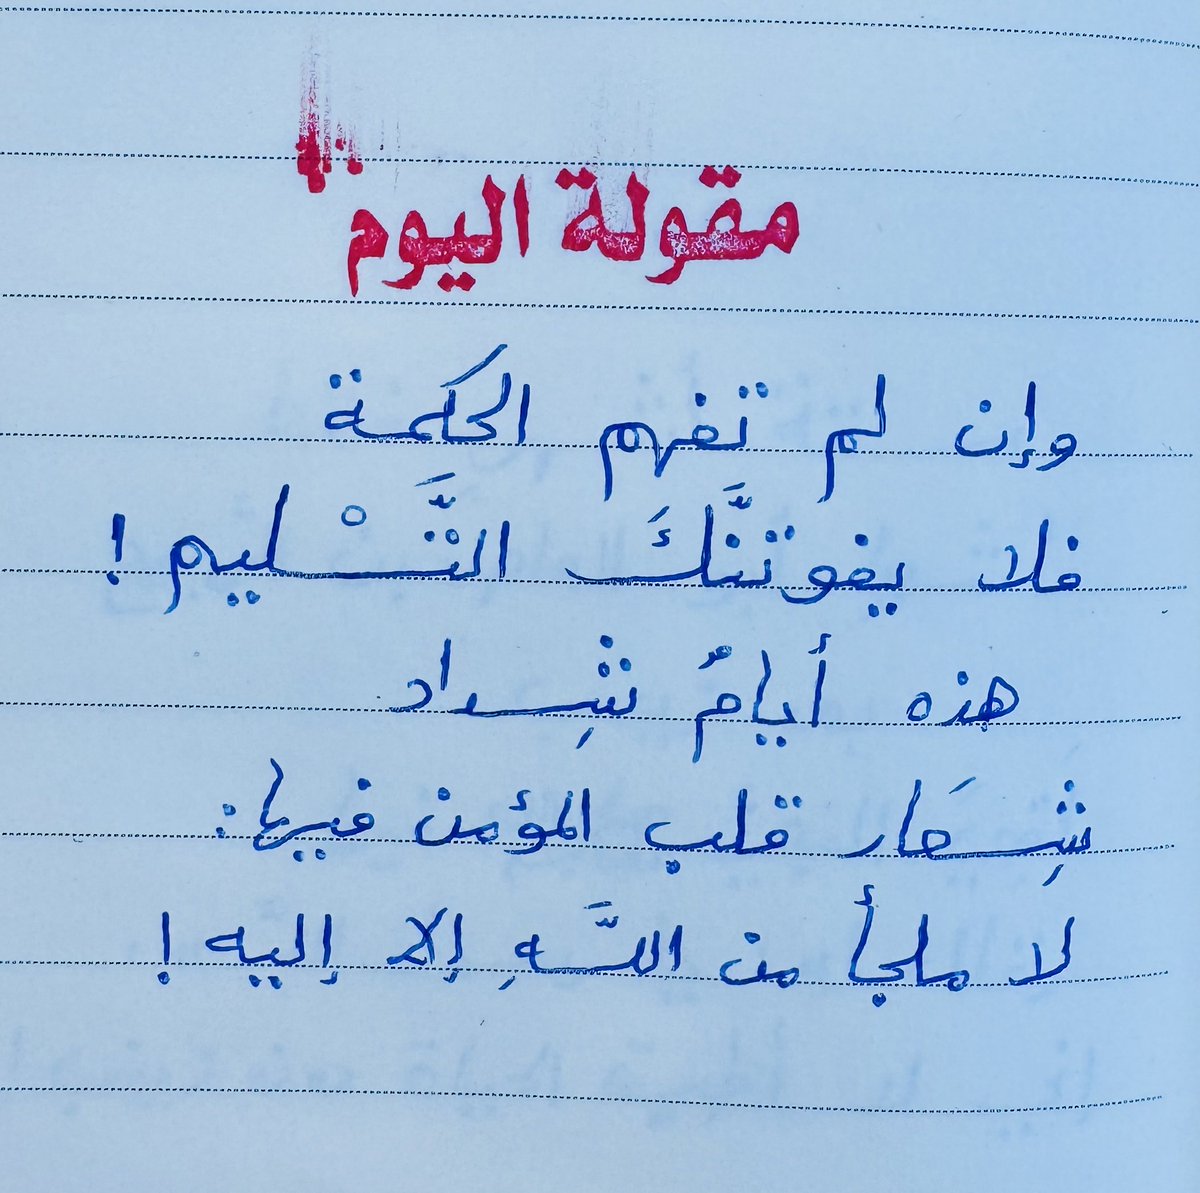 مقولة اليوم
وإن لم تفهم الحكمة
فلا يفوتنَّكَ التَّسْليم !
هذه أيامٌ شِداد
شِعَار قلب المؤمن فيها :
لا ملجأ من اللَّهِ إلا إليه !